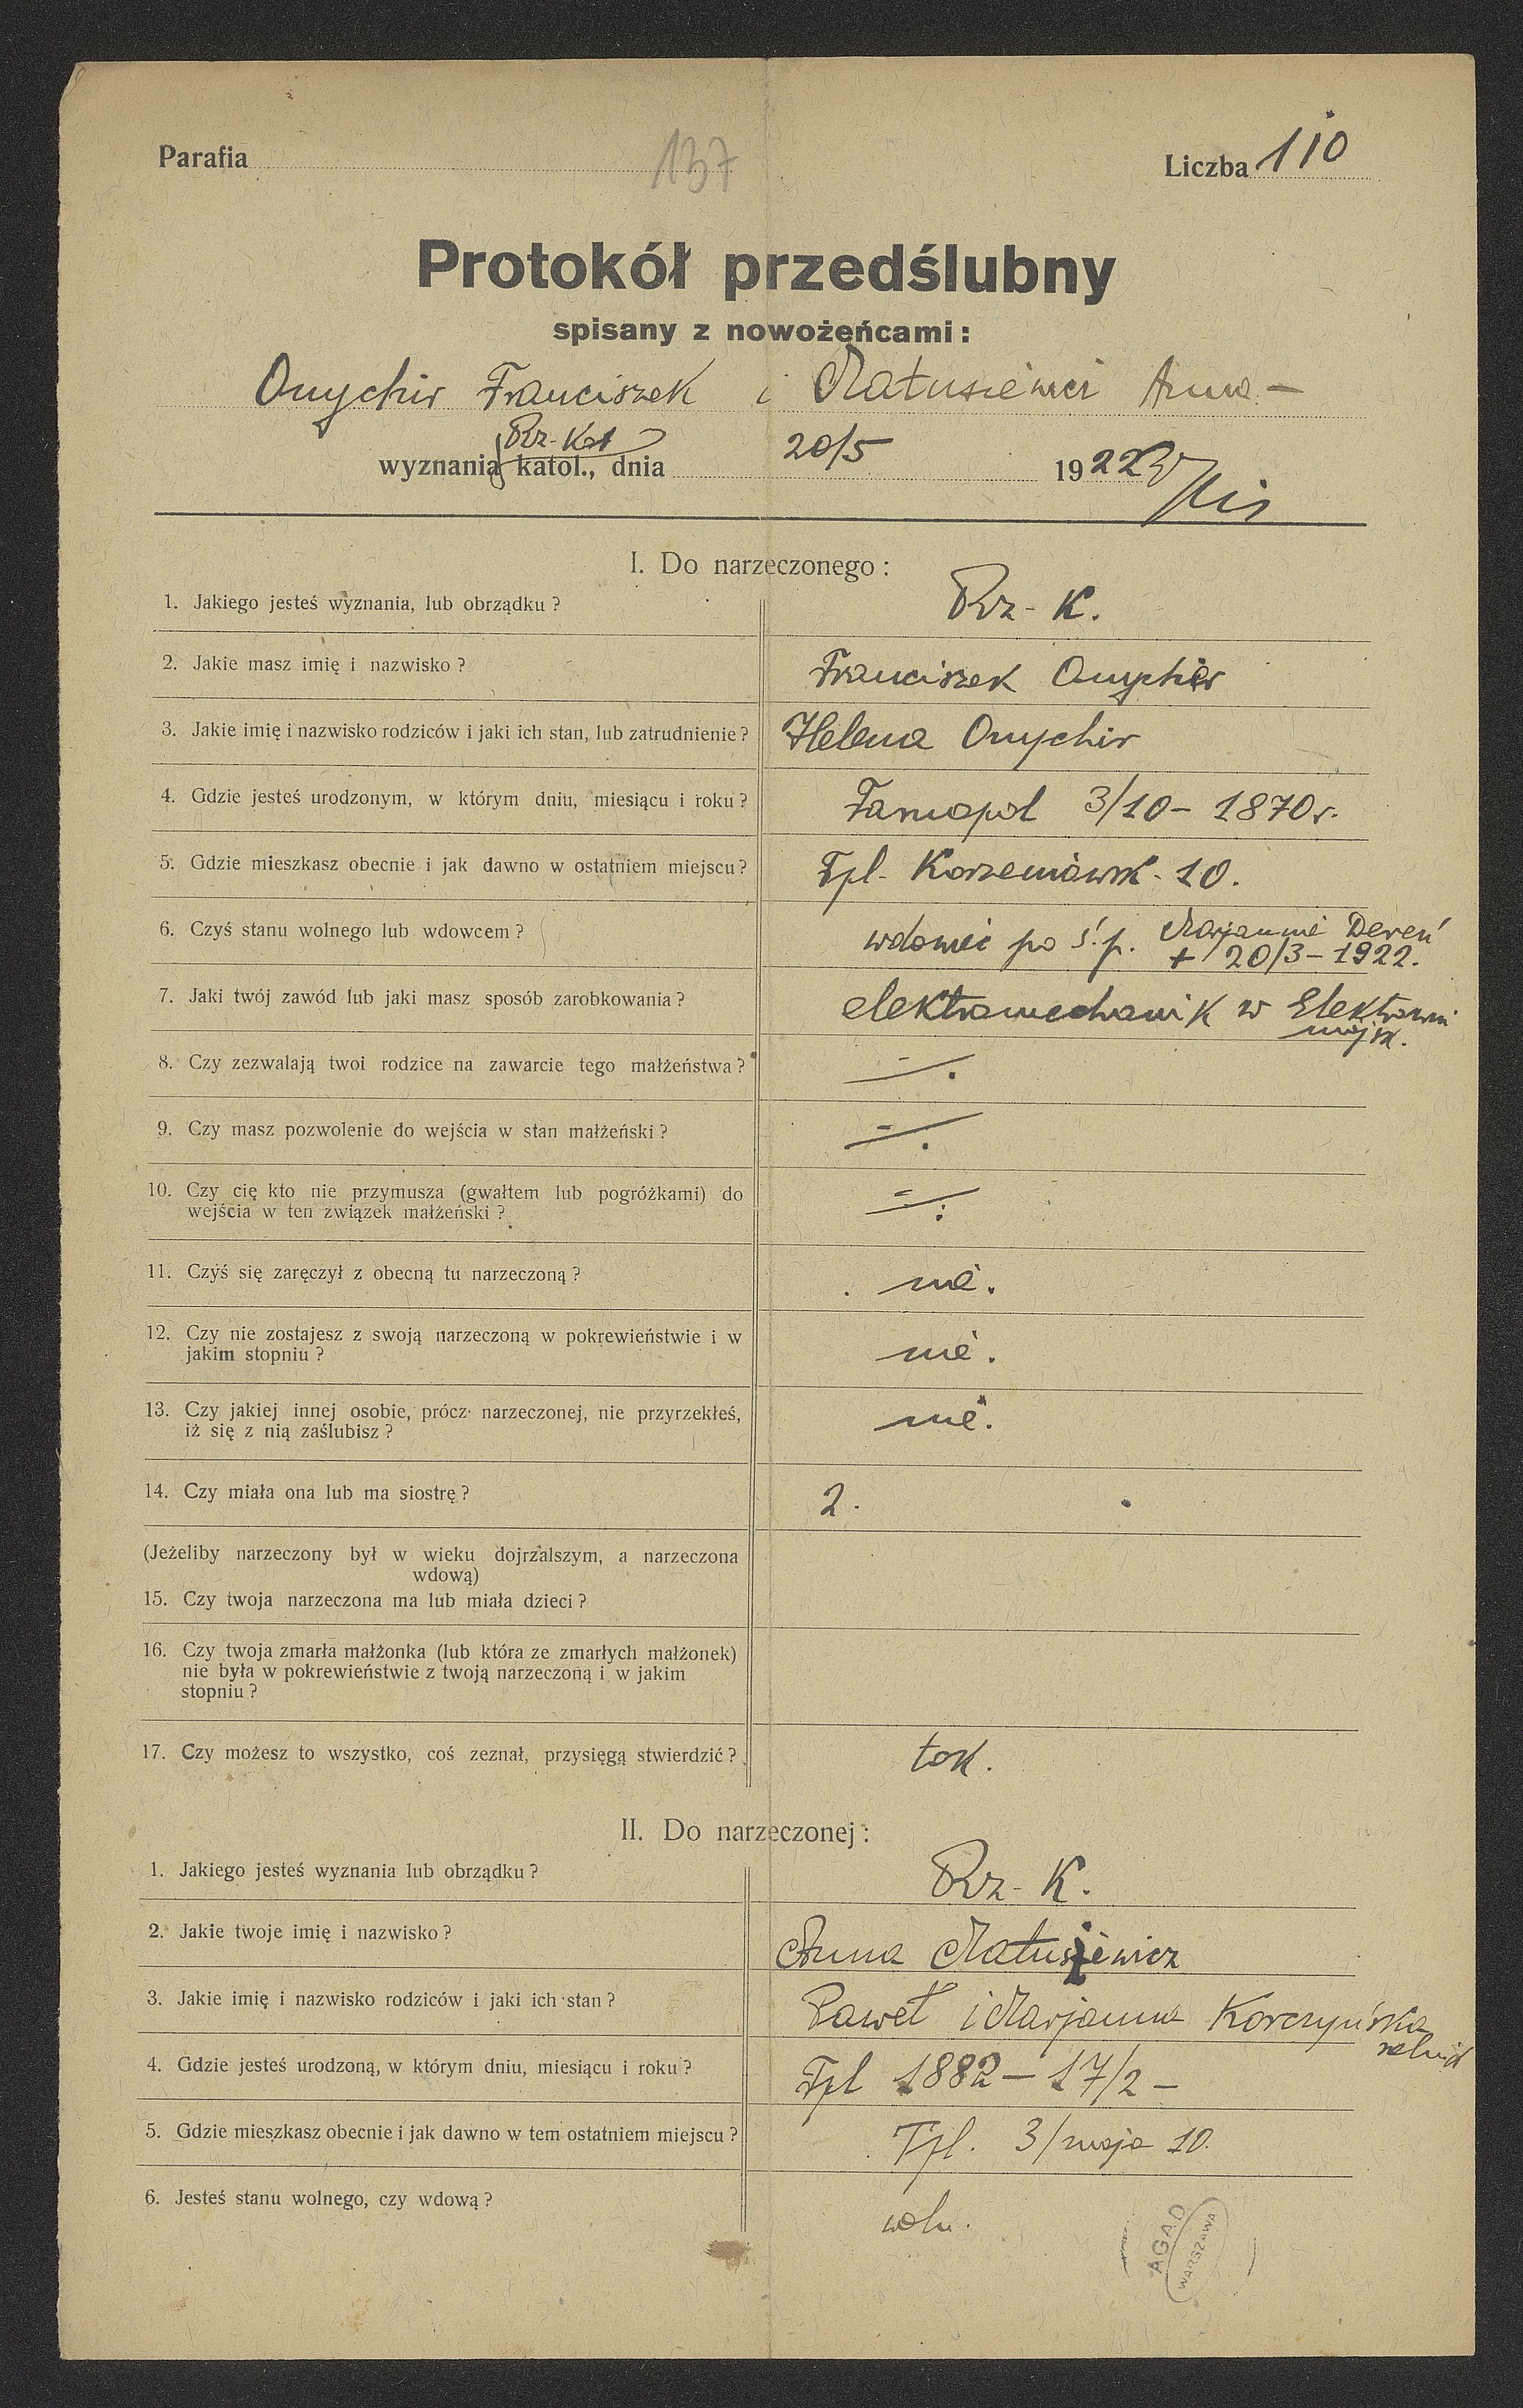 Parafia
137
Liczba 110
Protokół przedślubny
spisany z nowożeńcami:
Onychir Franciszek i Matusiewicz Anna —
Rz-Kat
wyznania katol., dnia 20/5 1922
I. Do narzeczonego:
1. Jakiego jesteś wyznania, lub obrządku? Rz-K.
2. Jakie masz imię i nazwisko? Franciszek Onychir
3. Jakie imię i nazwisko rodziców i jaki ich stan, lub zatrudnienie? Helena Onychir
4. Gdzie jesteś urodzonym, w którym dniu, miesiącu i roku? Tarnopol 3/10 - 1870 r.
5. Gdzie mieszkasz obecnie i jak dawno w ostatniem miejscu? Tpl. Korzeniowsk. 10.
6. Czyś stanu wolnego lub wdowcem? wdowiec po ś.p. Marjannie Dereń
+ 20/3 - 1922.
7. Jaki twój zawód lub jaki masz sposób zarobkowania? elektromechanik w Elektrowni
miejsk.
8. Czy zezwalają twoi rodzice na zawarcie tego małżeństwa? —.
9. Czy masz pozwolenie do wejścia w stan małżeński? —.
10. Czy cię kto nie przymusza (gwałtem lub pogróżkami) do
wejścia w ten związek małżeński? —.
11. Czyś się zaręczył z obecną tu narzeczoną? nie.
12. Czy nie zostajesz z swoją narzeczoną w pokrewieństwie i w
jakim stopniu? nie.
13. Czy jakiej innej osobie, prócz narzeczonej, nie przyrzekłeś,
iż się z nią zaślubisz? nie.
14. Czy miała ona lub ma siostrę? 2.
(Jeżeliby narzeczony był w wieku dojrzalszym, a narzeczona
wdową)
15. Czy twoja narzeczona ma lub miała dzieci?
16. Czy twoja zmarła małżonka (lub która ze zmarłych małżonek)
nie była w pokrewieństwie z twoją narzeczoną i w jakim
stopniu?
17. Czy możesz to wszystko, coś zeznał, przysięgą stwierdzić? tak.
II. Do narzeczonej:
1. Jakiego jesteś wyznania lub obrządku? Rz-K.
2. Jakie twoje imię i nazwisko? Anna Matusiewicz
3. Jakie imię i nazwisko rodziców i jaki ich stan? Paweł i Marjanna Korczyńska
rolnik
4. Gdzie jesteś urodzoną, w którym dniu, miesiącu i roku? Tpl 1882 — 17/2 —
5. Gdzie mieszkasz obecnie i jak dawno w tem ostatniem miejscu? Tpl. 3/maja 10.
6. Jesteś stanu wolnego, czy wdową? woln.
AGAD
WARSZAWA